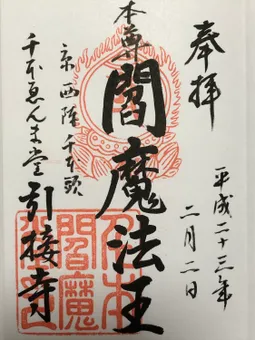 奉拝
平成二十三年
二月二日
本尊
閻魔法王
京西陣千本頭
千本ゑんま堂
引接寺